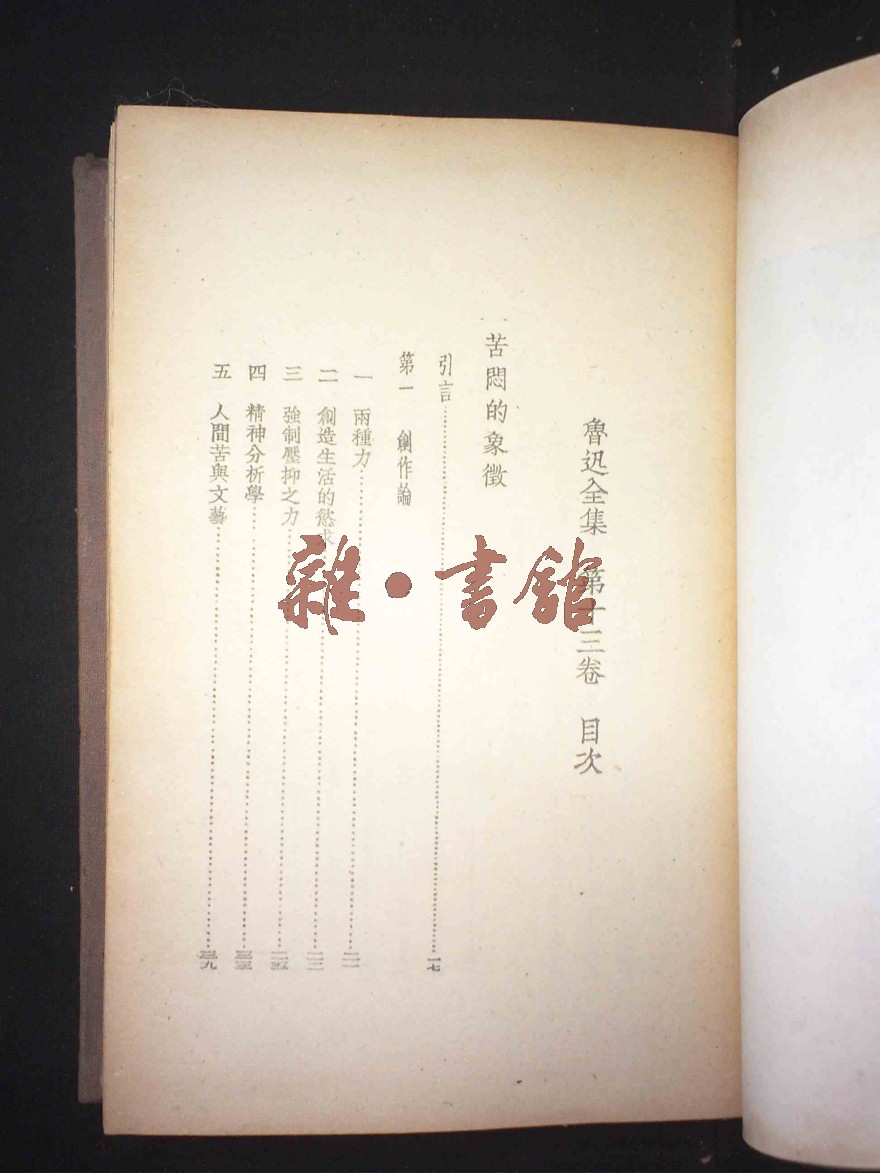 魯迅全集 第十三卷 目次
苦悶的象徵
引言……一七
第一 創作論
一 兩種力……二一
二 創造生活的慾求……二二
三 強制壓抑之力……二五
四 精神分析學……三三
五 人間苦與文藝……三九
雜·書館